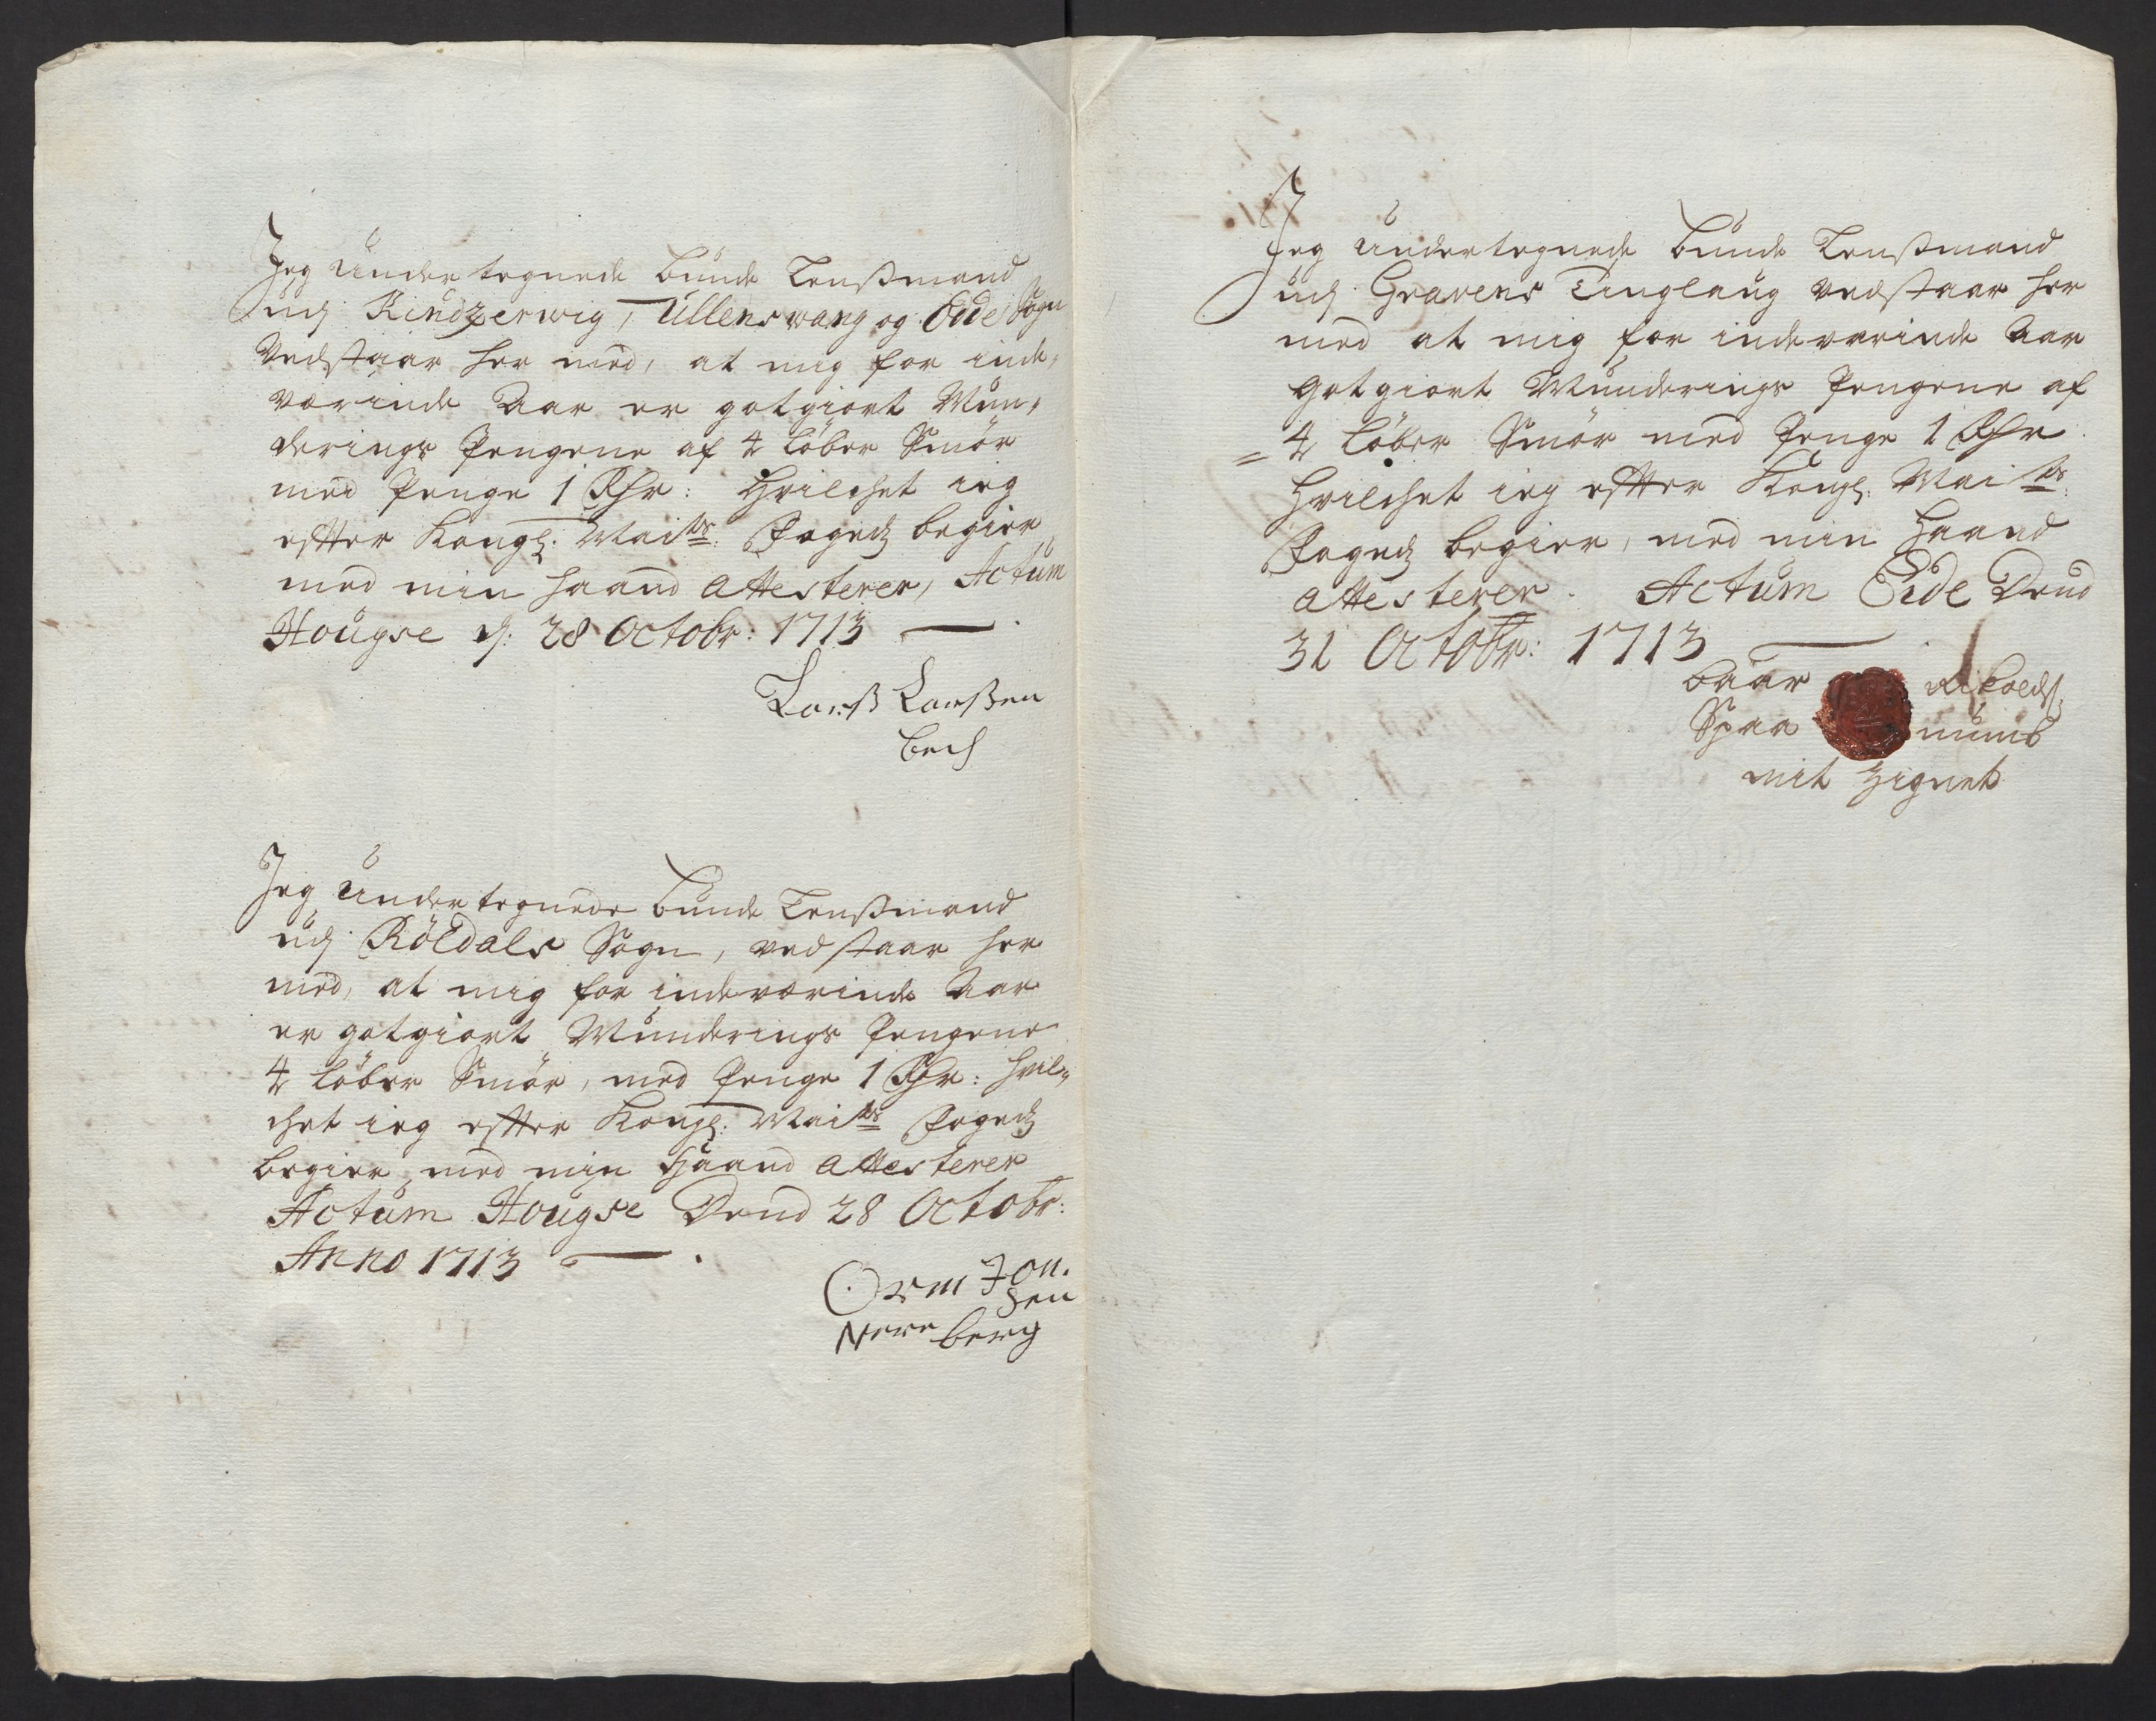 Jeg Under tegnede bunde Lensßmand
udj Kindzerwig, Ullenswang og Odde Sogn
Vedstaar her med, at mig for inde,
værinde Aar er gotgiort Mun,
derings Pengene af 4 Løber Smør
med Penge 1 Rdr: Hvilchet ieg
effter Kongl: Maits: Fogetz begier,
med min haand Attesterer, Actum
Hougse d: 28 Octobr: 1713
Larß Larßen
bech
Jeg Under tegnede bunde Lensßmand
udj Röldals Sogn, vedstaar her
med, at mig for indeværinde Aar
er gotgiort Munderings Pengene
4 Løber Smør, med Penge 1 Rdr: hvil,
chet ieg effter Kongl: Maits Fogetz
begier, med min Haand Attesterer
Actum Hougse Dend 28 Octobr:
Anno 1713
Orm Jon.
sen
Nere berg
Jeg Undertegnede bunde Lensßmand
udj Gravens Tinglaug vedstaar her
med at mig for indeværinde Aar
gotgiort Munderings Pengene af
4 Løber Smør med Penge 1 Rdr
Hvilchet ieg effter Kongl: Maits:
Fogetz begier, med min Haand
Attesterer. Actum Eide Dend
31 Octobr: 1713
Spaa num
mit Zignet